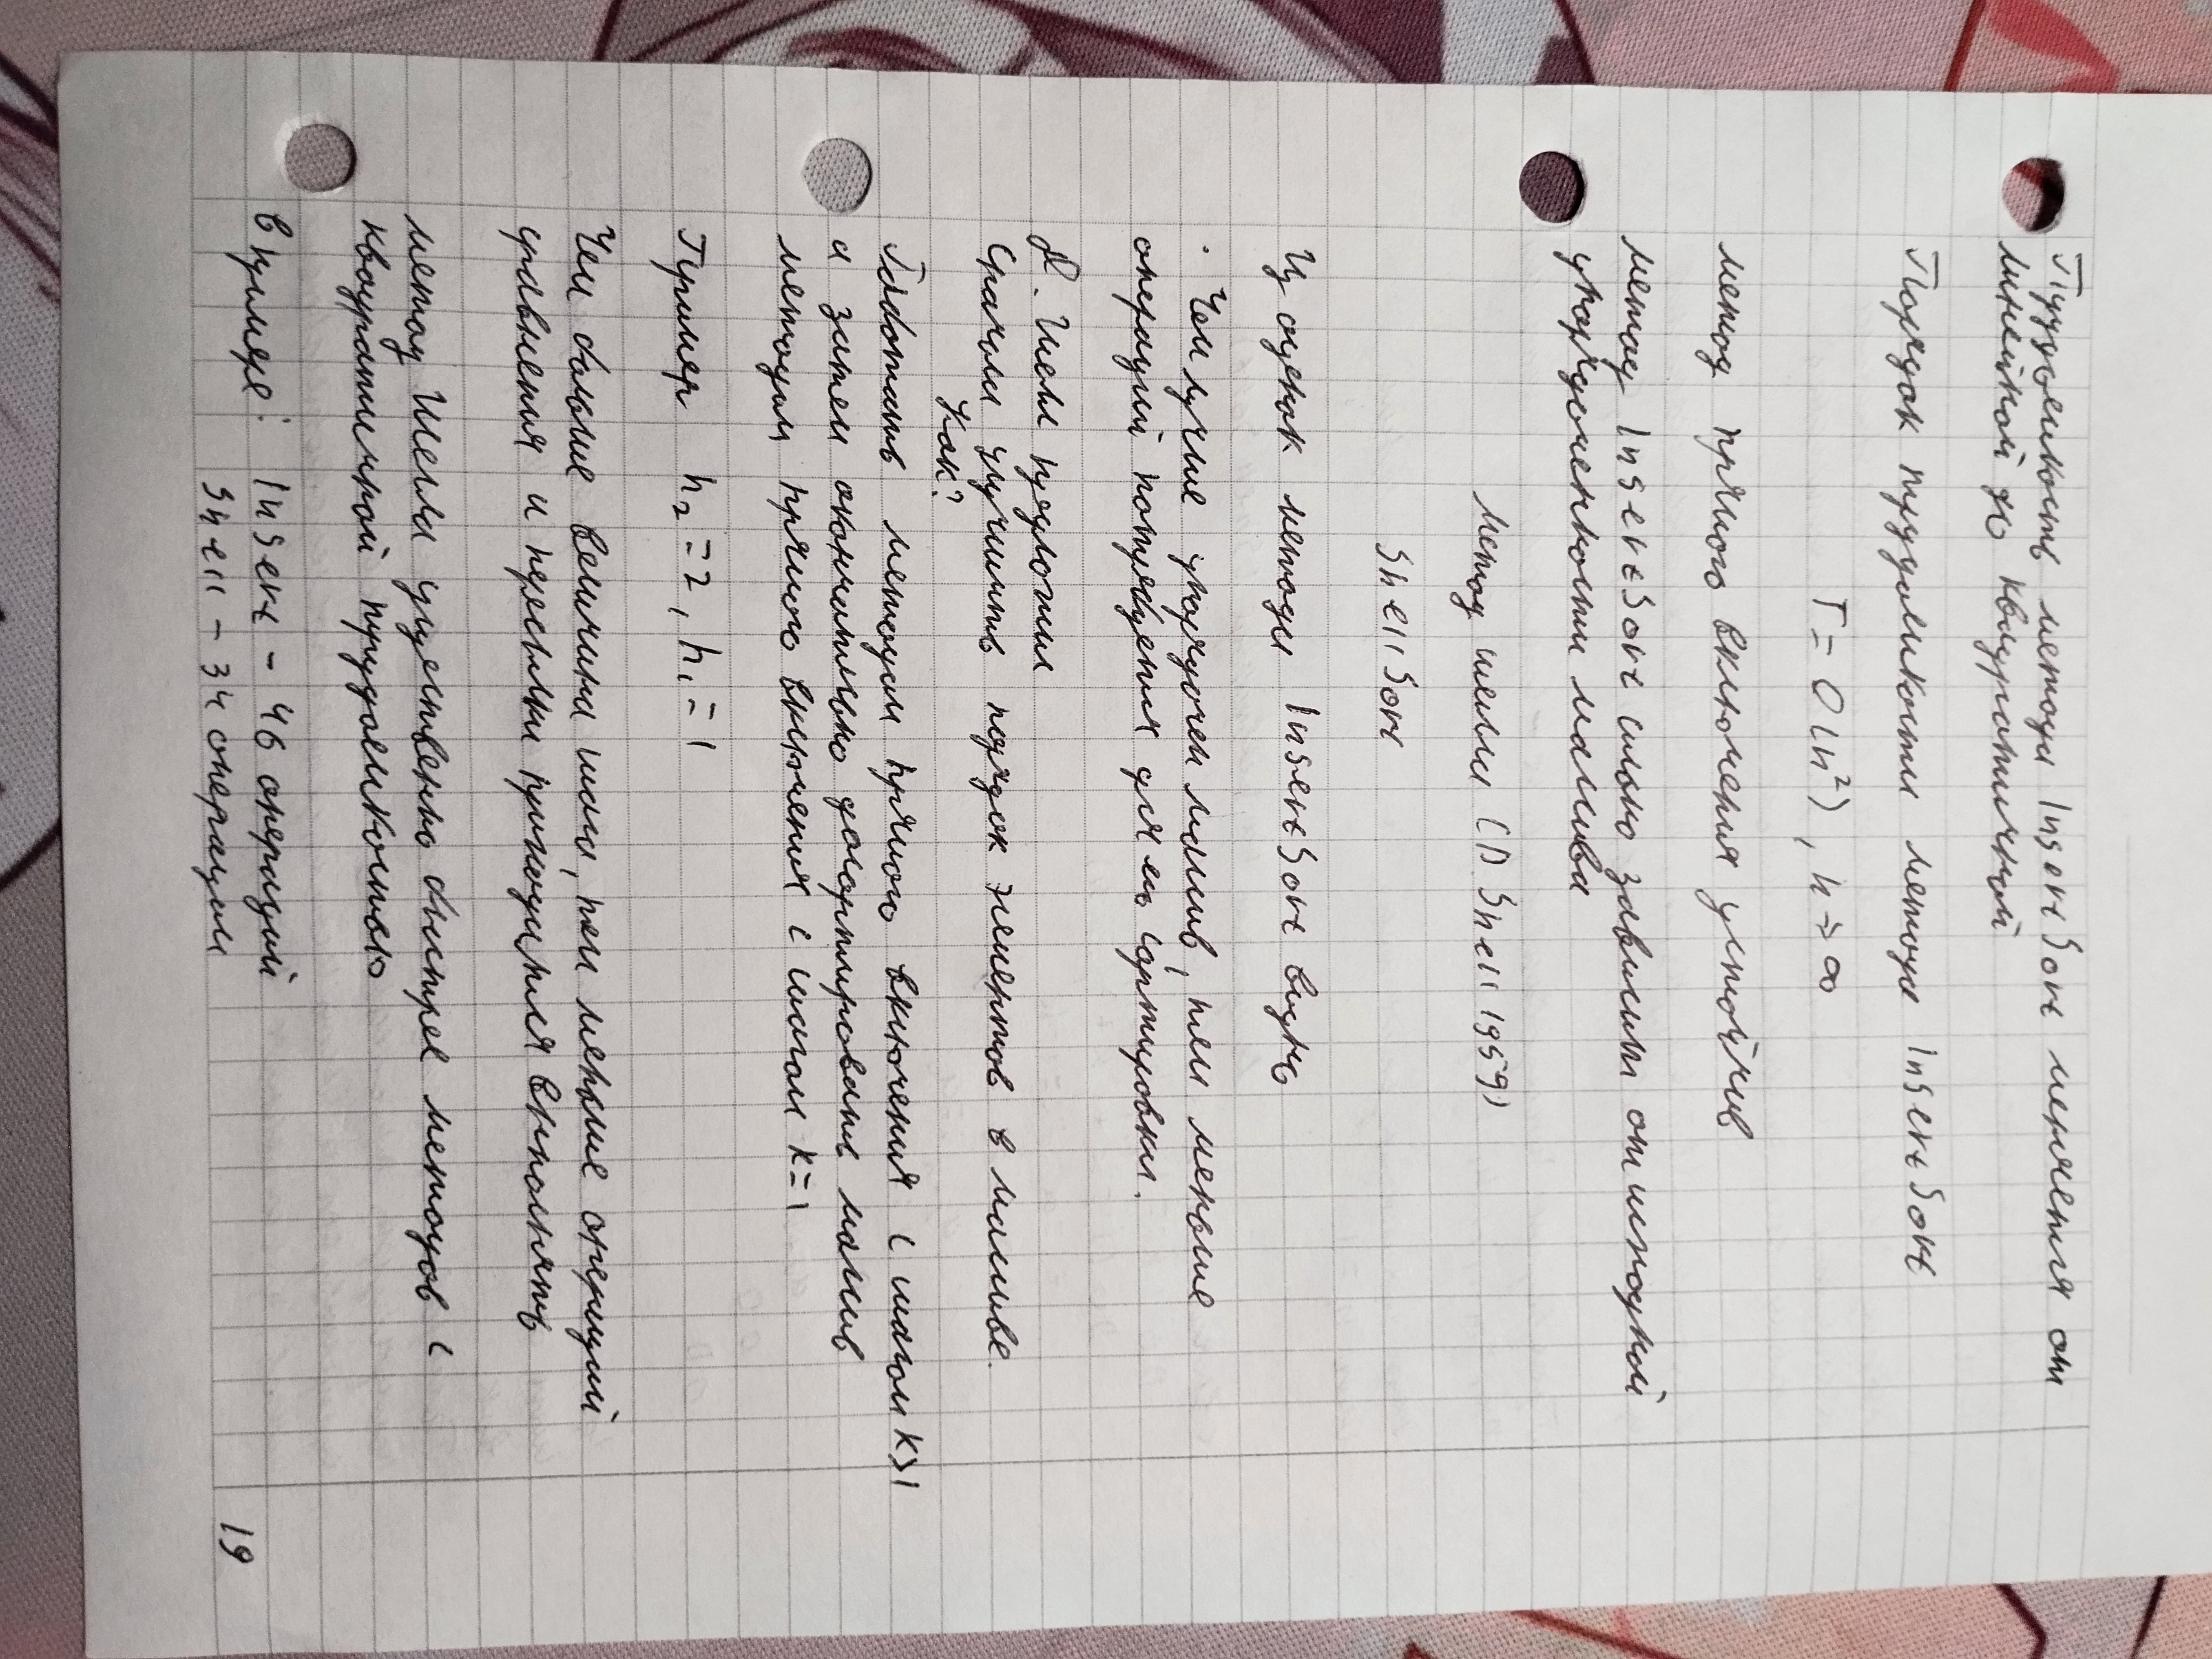 Трудоемкость метода InsertSort меняется от
линейной до квадратичной
Порядок трудоемкости метода InsertSort
T = O(n²), n → ∞
метод прямого включения устойчив
метод InsertSort сильно зависит от исходной
упорядоченности массива
метод шелла (D. Shell 1959)
ShellSort
Из оценок метода InsertSort видно
· Чем лучше упорядочен массив, тем меньше
операций потребуется для его сортировки.
Д. Шелл предложил
Сначала улучшить порядок элементов в массиве.
Как?
Работать методом прямого включения с шагом K>1
а затем окончательно досортировать массив
методом прямого включения с шагом K=1
Пример h₂ = 2, h₁ = 1
Чем больше величина шага, тем меньше операций
сравнения и пересылки приходится выполнять
метод Шелла существенно быстрее методов с
квадратичной трудоемкостью
в примере: Insert - 46 операций
Shell - 34 операции
19